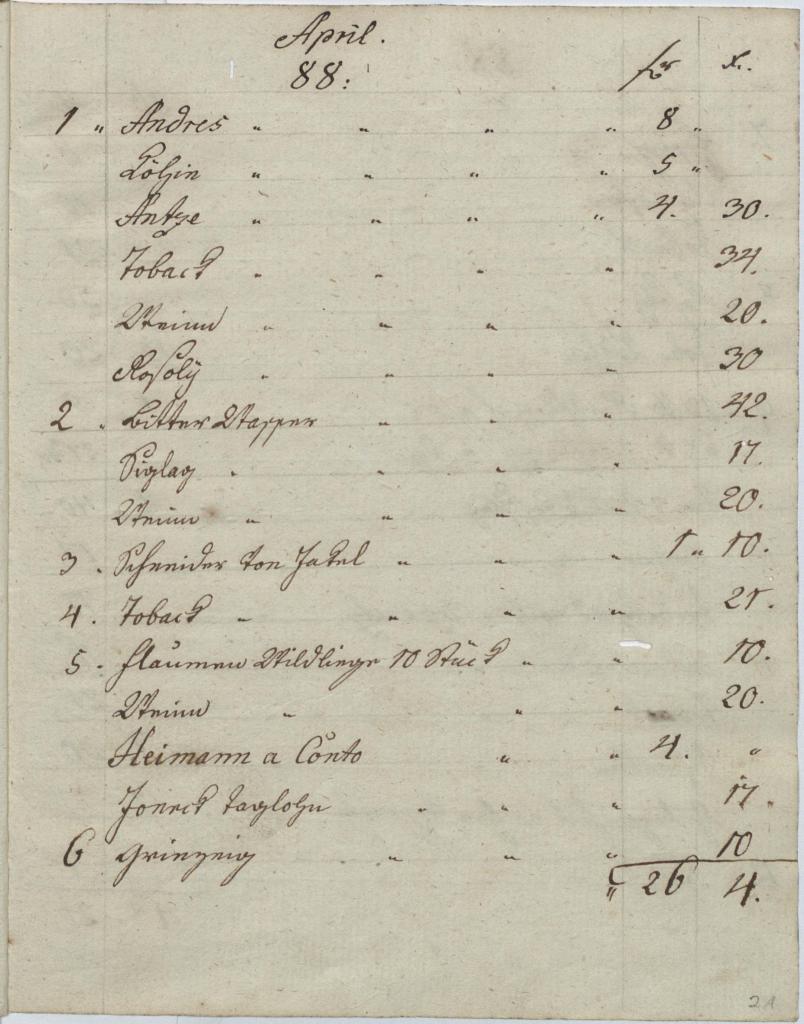 April.
88:
fr x.
1 " Andres " " " " 8 "
Köchin " " " " 5 "
Antze " " " " 4. 30.
Toback " " " " 34.
Weinn " " " " 20.
Rosoly " " " " 30
2 " bitter Wasser " " " 42.
Siglag " " " " 17.
Weinn " " " " 20.
3 " Schneider von Jakel " " " 1 " 10.
4. Toback " " " " 21.
5 " flaumen Wildlinge 10 Stück " " 10.
Weinn " " " 20.
Heimann a Conto " " 4. "
Joneck taglohn " " " 17.
6 Grinzeig " " " 10
" 26 4.
21